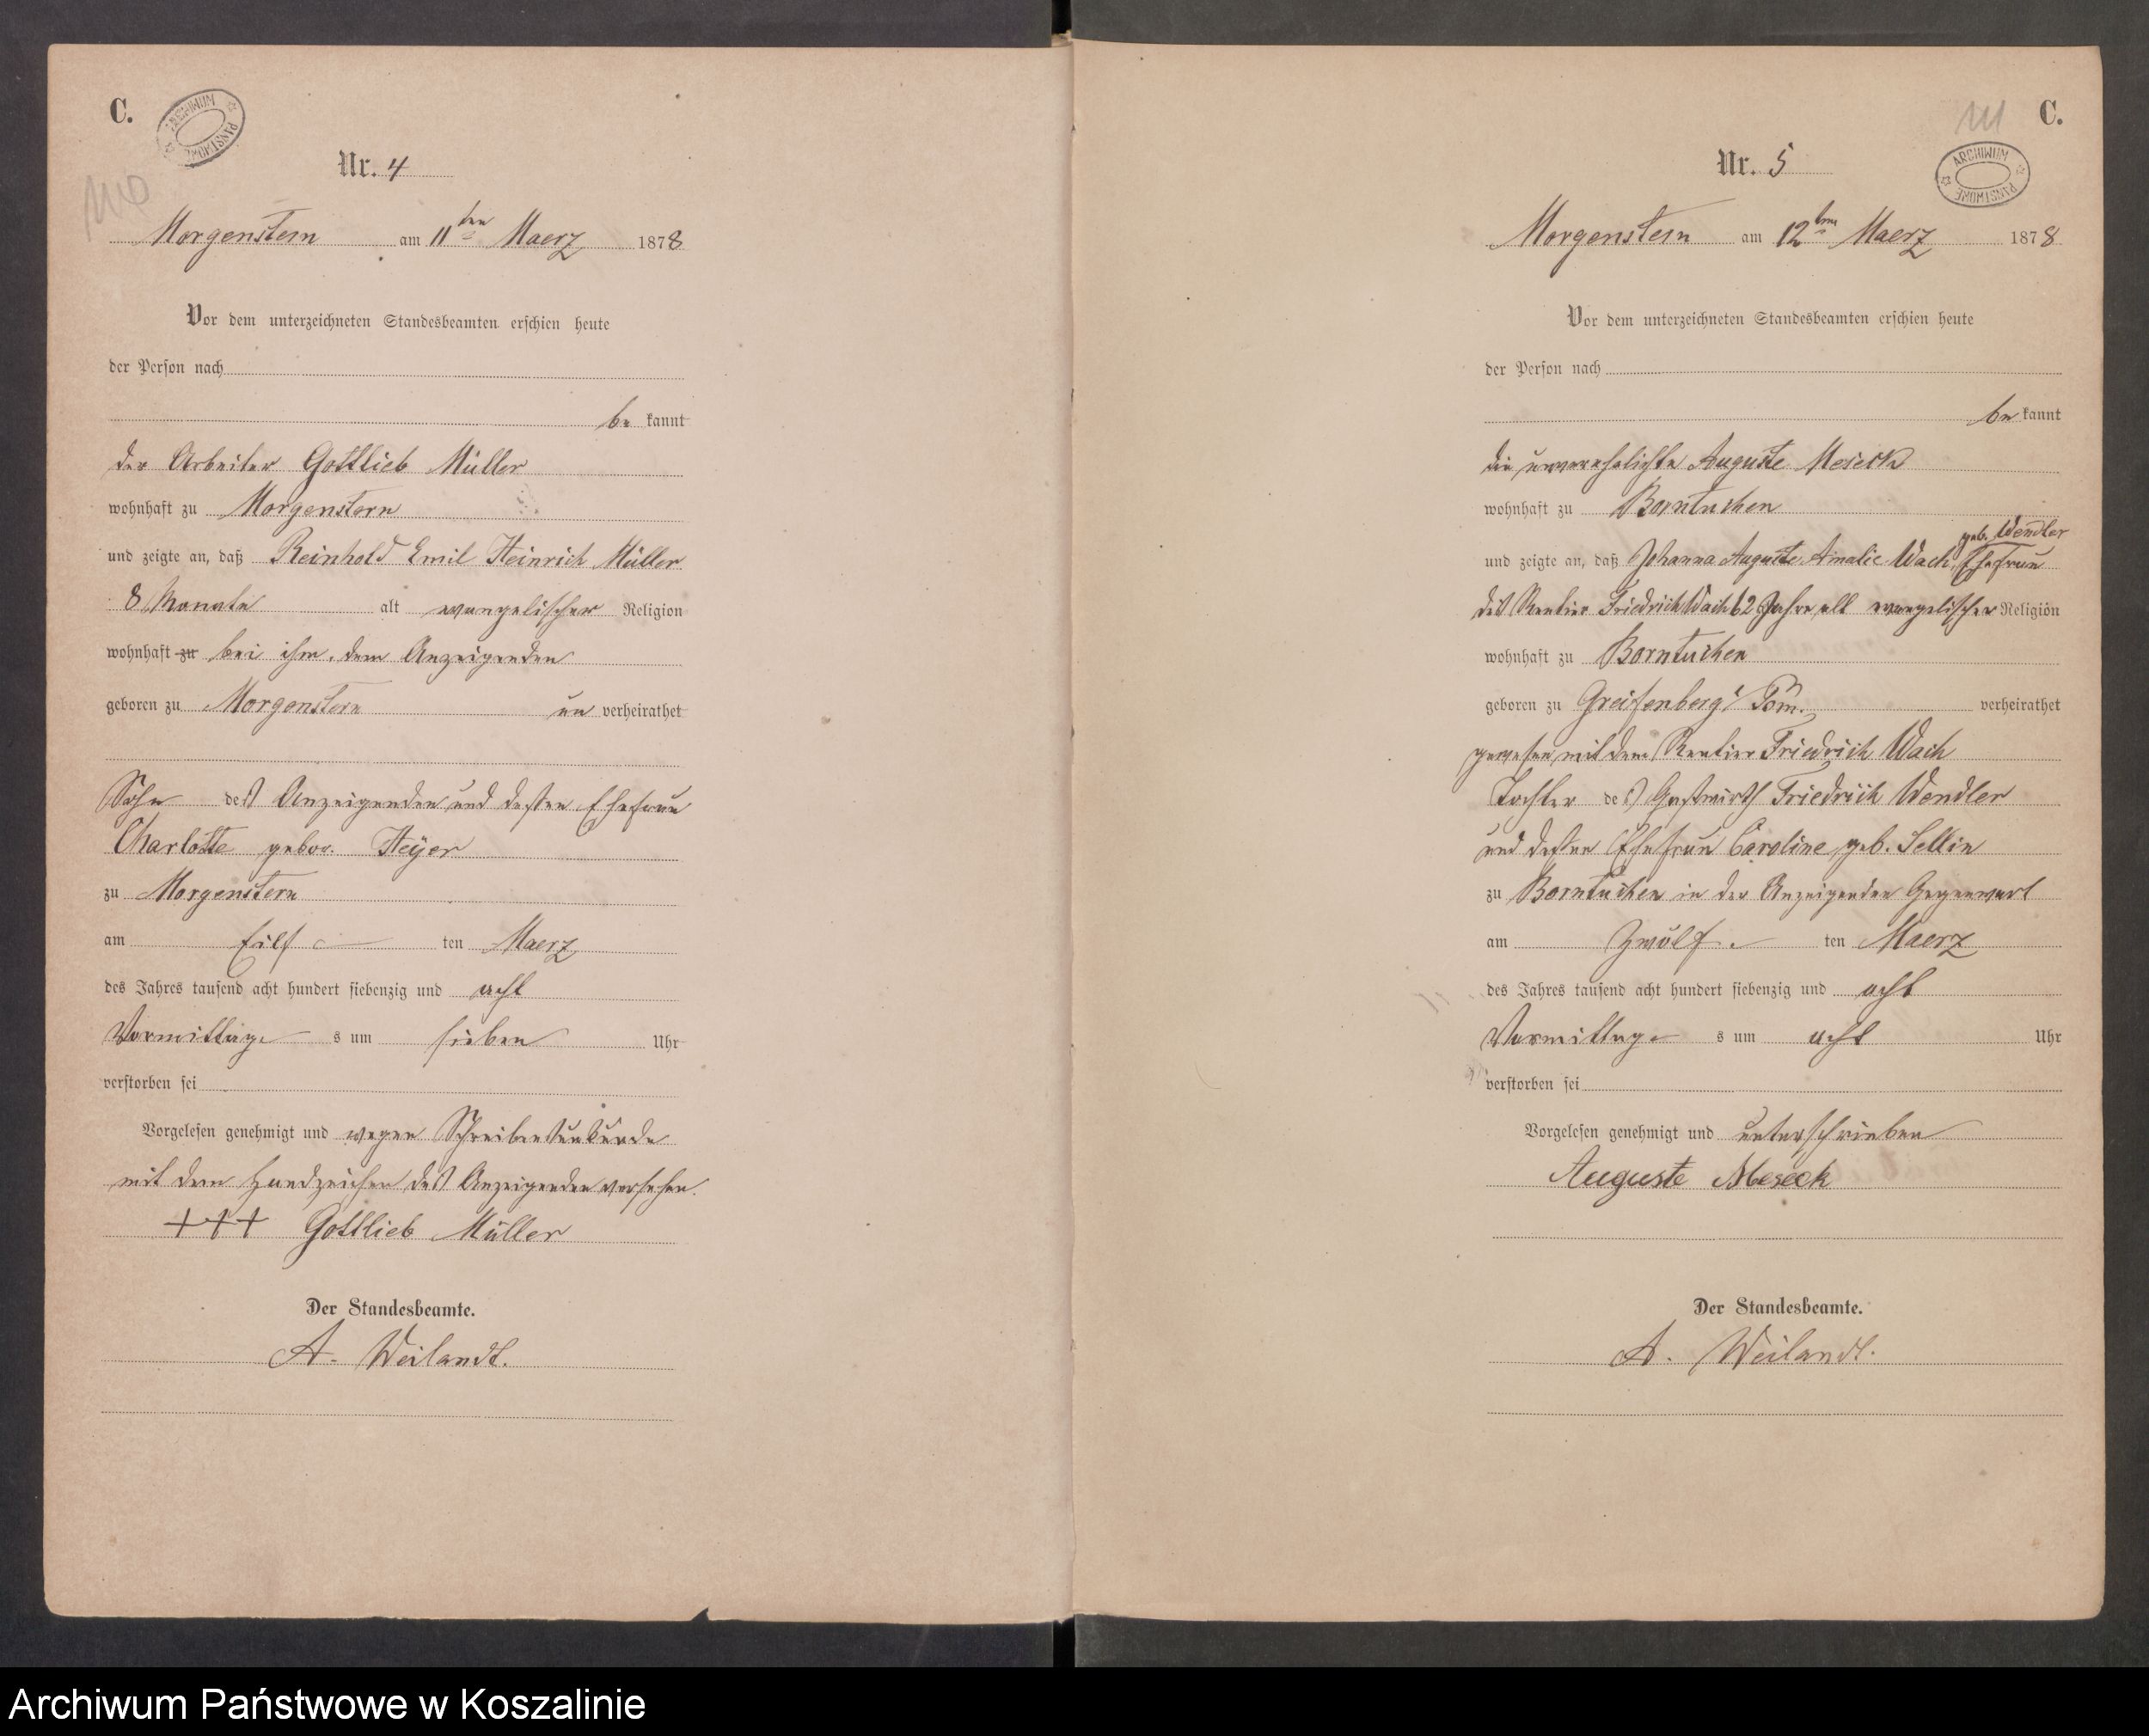 C.
ARCHIWUM PAŃSTWOWE
110
Nr. 4
Morgenstern am 11ten Maerz 1878
Vor dem unterzeichneten Standesbeamten erschien heute
der Person nach
be kannt
der Arbeiter Gottlieb Müller
wohnhaft zu Morgenstern
und zeigte an, daß Reinhold Emil Heinrich Müller
8 Monate alt evangelischer Religion
wohnhaft zu bei ihm, dem Anzeigenden
geboren zu Morgenstern un verheirathet
Sohn des Anzeigenden und dessen Ehefrau
Charlotte gebor. Heyer
zu Morgenstern
am Eilf ten Maerz
des Jahres tausend acht hundert siebenzig und acht
Vormittag s um sieben Uhr
verstorben sei
Vorgelesen genehmigt und wegen Schreibensunkunde
mit dem Handzeichen des Anzeigenden versehen.
+++ Gottlieb Müller
Der Standesbeamte.
A. Weilandt.
111
C.
ARCHIWUM PAŃSTWOWE
Nr. 5
Morgenstern am 12ten Maerz 1878
Vor dem unterzeichneten Standesbeamten erschien heute
der Person nach
be kannt
die unverehelichte Auguste Meseck
wohnhaft zu Borntuchen
geb. Wendler
und zeigte an, daß Johanna Auguste Amalie Wach, Ehefrau
des Rentier Friedrich Wach 62 Jahre alt evangelischer Religion
wohnhaft zu Borntuchen
geboren zu Greifenberg i/ Pom. verheirathet
gewesen mit dem Rentier Friedrich Wach
Tochter des Gastwirth Friedrich Wendler
und dessen Ehefrau Caroline, geb. Sellin
zu Borntuchen in der Anzeigenden Gegenwart
am Zwölf ten Maerz
des Jahres tausend acht hundert siebenzig und acht
Vormittag s um acht Uhr
verstorben sei
Vorgelesen genehmigt und unterschrieben
Auguste Meseck
Der Standesbeamte.
A. Weilandt.
Archiwum Państwowe w Koszalinie